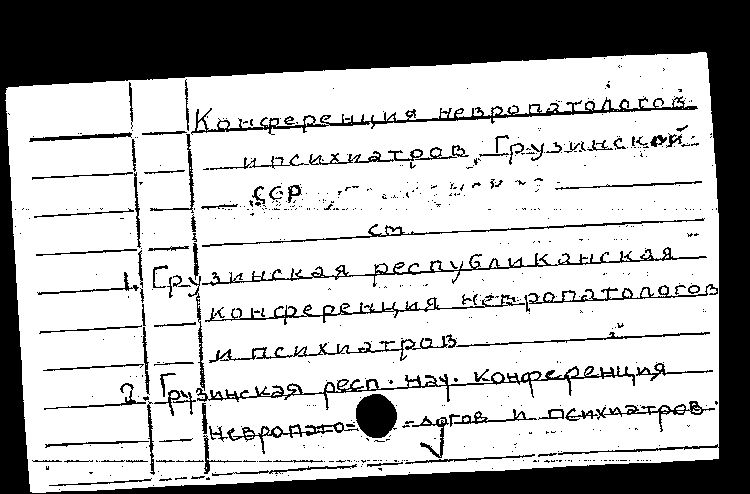 Конференция невропатологов
и психиатров, Грузинской
ССР
см.
1. Грузинская республиканская
конференция невропатологов
и психиатров
2. Грузинская респ. нау. конференция
невропато= =логов и психиатров.